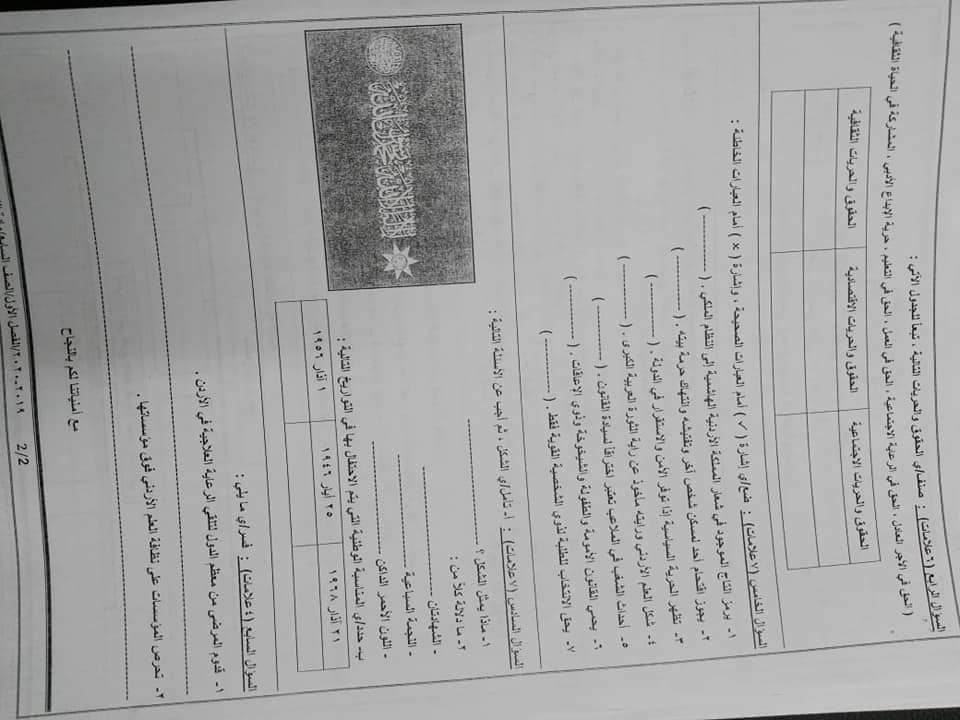 السؤال الرابع (٦علامات) : صنف/ي الحقوق والحريات التالية ، تبعاً للجدول الآتي :
( الحق في الأجر العادل ، الحق في الرعاية الاجتماعية ، الحق في العمل ، الحق في التعليم ، حرية الإبداع الأدبي ، المشاركة في الحياة الثقافية )
الحقوق والحريات الاجتماعية الحقوق والحريات الاقتصادية الحقوق والحريات الثقافية
السؤال الخامس (٧علامات) : ضع/ي إشارة ( ✓ ) أمام العبارات الصحيحة ، وإشارة ( × ) أمام العبارات الخاطئة :
١- يرمز التاج الموجود في شعار المملكة الأردنية الهاشمية إلى النظام الملكي . ( ---------- )
٢- يجوز اقتحام أحد لمسكن شخص آخر وتفتيشه وانتهاك حرمة بيته . ( ---------- )
٣- تظهر الحرية السياسية إذا توفر الأمن والاستقرار في الدولة . ( ---------- )
٤- شكل العلم الأردني ورايته مأخوذ عن راية الثورة العربية الكبرى . ( ---------- )
٥- أحداث الشغب في الملاعب تعتبر اختراقاً لسيادة القانون . ( ---------- )
٦- يحمي القانون الأمومة والطفولة والشيخوخة وذوي الإعاقات . ( ---------- )
٧- يحق الانتخاب للطلبة لذوي الشخصية القوية فقط . ( ---------- )
السؤال السادس (٧علامات) : أ- تأمل/ي الشكل ، ثم أجب عن الأسئلة التالية :
١- ماذا يمثل الشكل ؟ ----------
٢- ما دلالة كلاً من :
- الشهادتان ----------
- النجمة السباعية ----------
- اللون الأحمر الداكن ----------
ب- حدد/ي المناسبة الوطنية التي يتم الاحتفال بها في التواريخ التالية :
٢١ آذار ١٩٦٨ ٢٥ أيار ١٩٤٦ ١ آذار ١٩٥٦
السؤال السابع (٤علامات) : فسر/ي ما يلي :
١- قدوم المرضى من معظم الدول لتلقي الرعاية العلاجية في الأردن .
٢- تحرص المؤسسات على نظافة العلم الأردني فوق مؤسساتها .
مع أمنياتنا لكم بالنجاح
2/2 ٢٠١٩-٢٠٢٠/الفصل الأول/الصف السابع